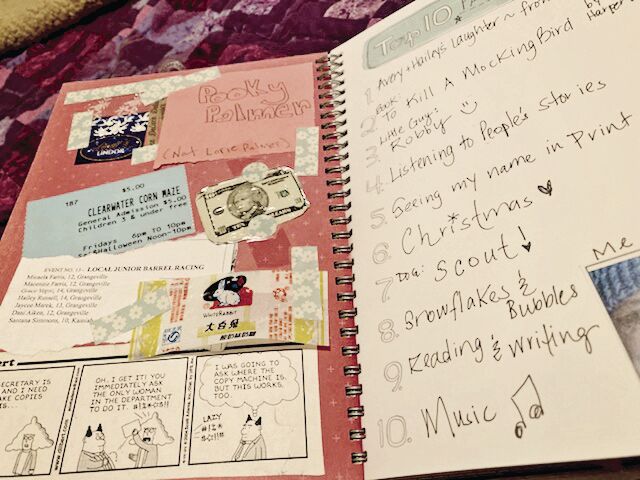 Pooky
Palmer
(Not Lorie Palmer)
LINDOR
$5.00
187
CLEARWATER CORN MAZE
General Admission $5.00
Children 3 & under free
Fridays 6pm TO 10pm
Halloween Noon-10pm
EVENT NO. 11 - LOCAL JUNIOR BARREL RACING
Micaela Farris, 12, Grangeville
Mackenzie Farris, 12, Grangeville
Grace 14, Grangeville
Hailey Russell, 14, Grangeville
Jaycee Marek, 13, Grangeville
Dani Aiken, 12, Grangeville
Santana Simmons, 10, Kamiah
WHITE RABBIT
大白兔
SECRETARY IS
AND I NEED
MAKE COPIES
IS...
OH, I GET IT! YOU
IMMEDIATELY ASK
THE ONLY WOMAN
IN THE DEPARTMENT
TO DO IT. #!%*@&!!
I WAS GOING TO
ASK WHERE THE
COPY MACHINE IS,
BUT THIS WORKS,
TOO.
LAZY
Top 10
1. Avery + Hailey's Laughter ~ from
2. Book: To Kill A Mockingbird by Harper
3. Little Guy: Robby
4. Listening to People's Stories
5. Seeing my name in Print
6. Christmas
7. Dog: Scout!
8. Snowflakes & Bubbles
9. Reading & Writing
10. Music
Me